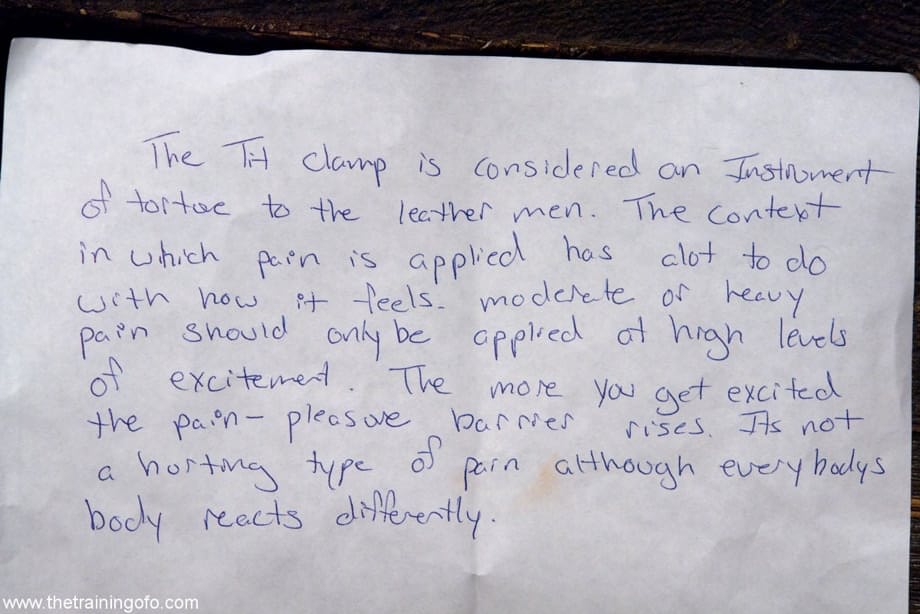 The Tit clamp is considered an Instrument
of tortue to the leather men. The context
in which pain is applied has alot to do
with how it feels. moderate or heavy
pain should only be applied at high levels
of excitement. The more you get excited
the pain- pleasure barrier rises. Its not
a hurting type of pain although everybodys
body reacts differently.
www.thetrainingofo.com